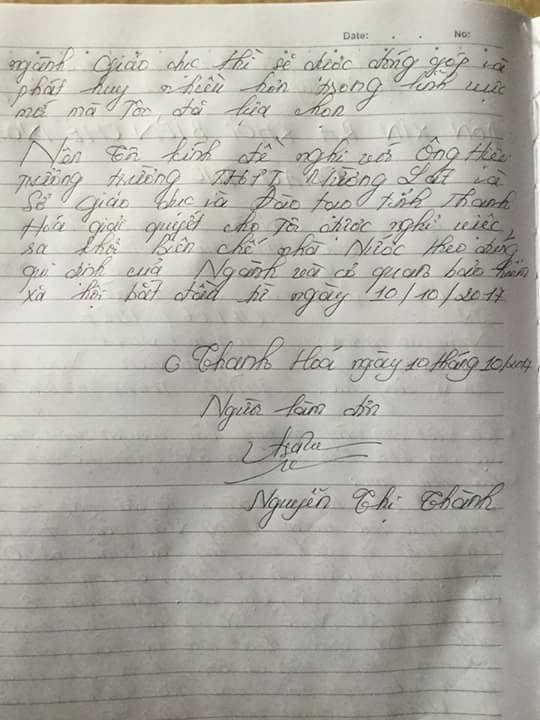 Date: . . No:
ngành Giáo dục thì sẽ được đóng góp và
phát huy nhiều hơn trong lĩnh vực
mới mà tôi đã lựa chọn
Nên tôi kính đề nghị với Ông Hiệu
trưởng trường THPT Mường Lát và
Sở Giáo dục và Đào tạo tỉnh Thanh
Hoá giải quyết cho tôi được nghỉ việc,
ra khỏi biên chế nhà Nước theo đúng
qui định của Ngành và cơ quan bảo hiểm
xã hội bắt đầu từ ngày 10/10/2017
Thanh Hoá ngày 10 tháng 10/2017
Người làm đơn
Nguyễn Thị Thành